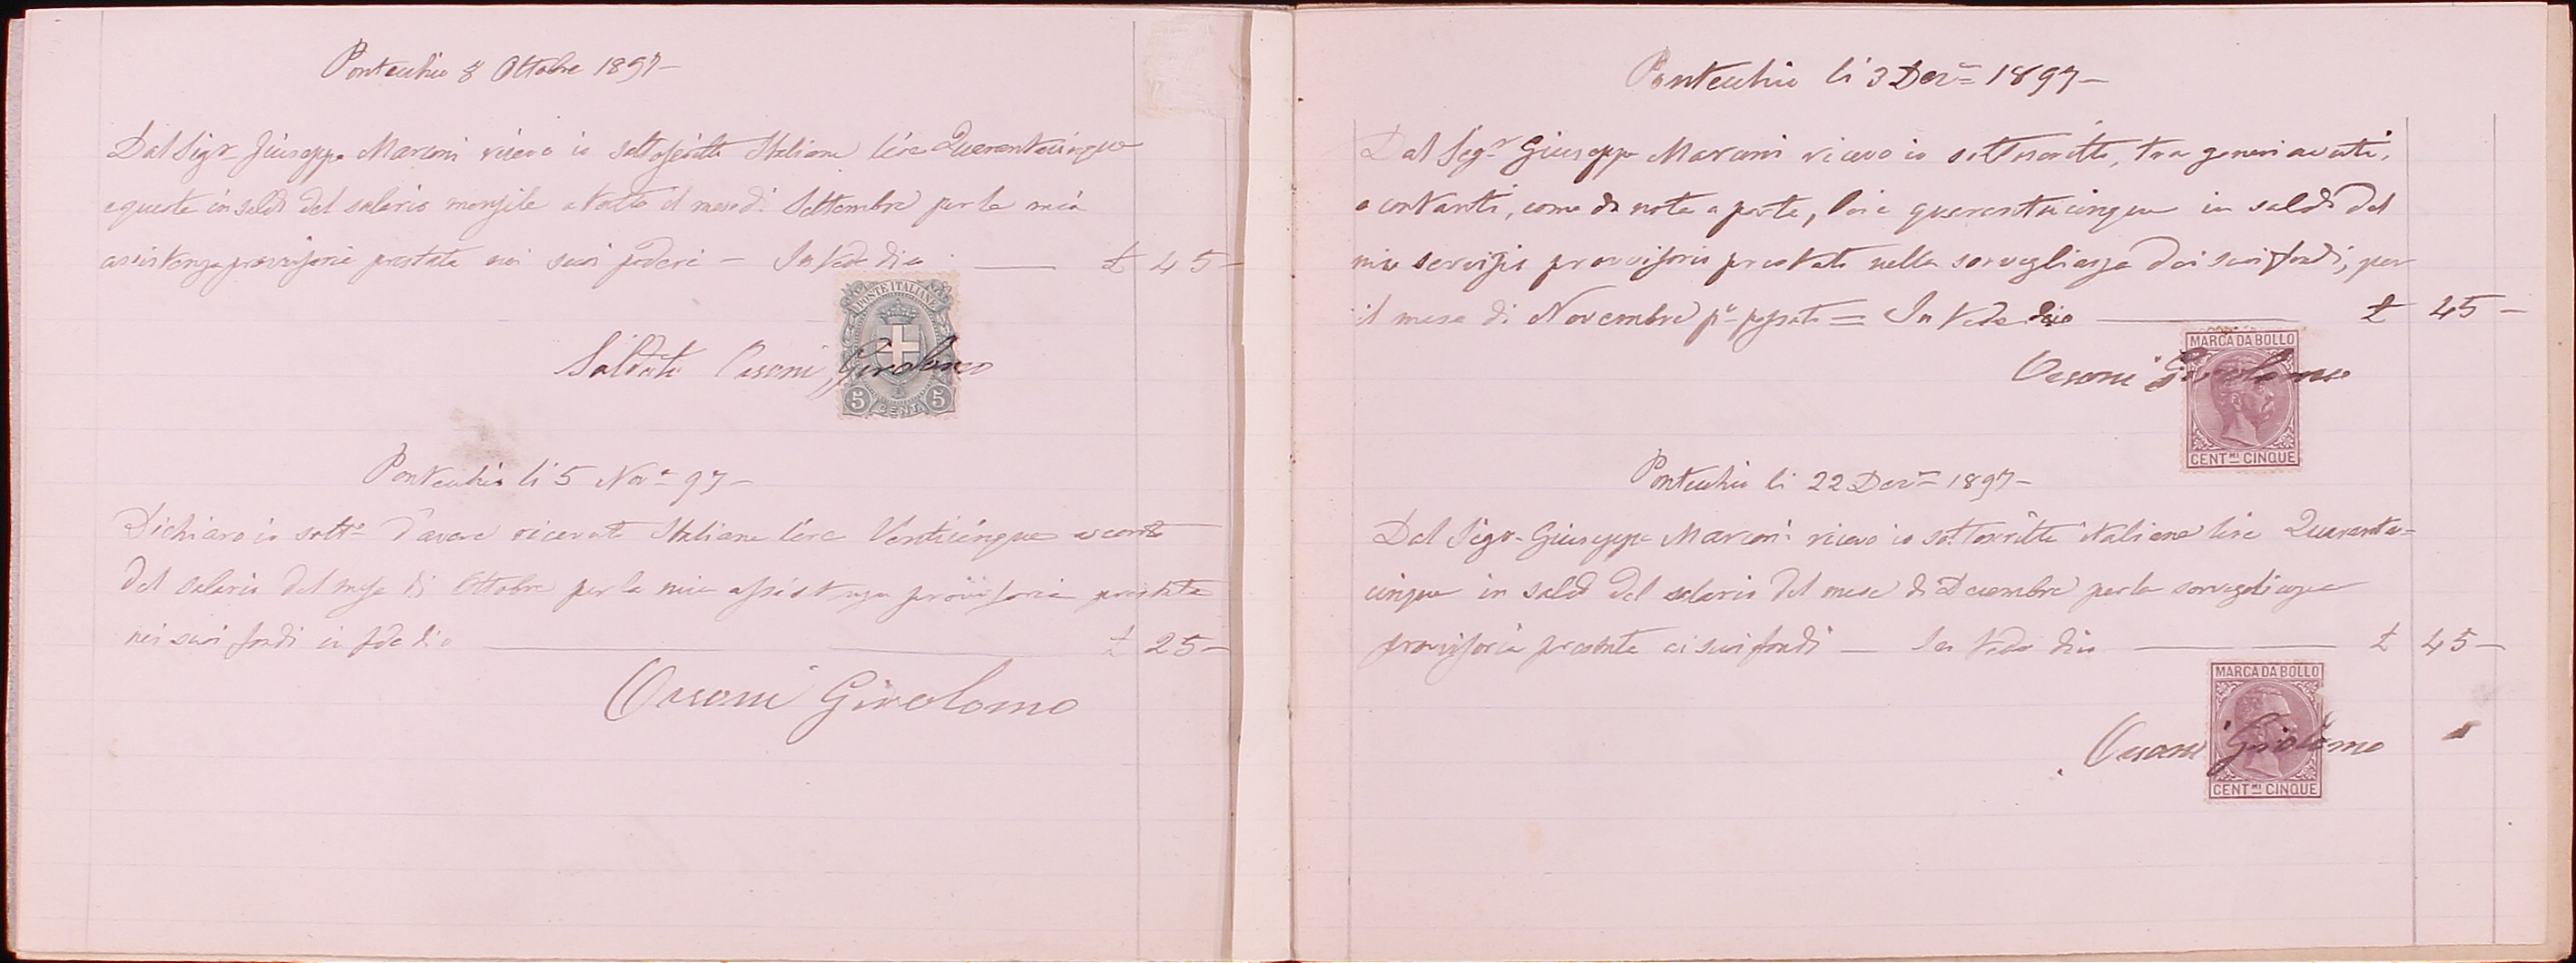 Pontecchio 8 Ottobre 1897 –
Dal Sigr. Giuseppe Marconi ricevo io sottoscritto Italiane lire Quarantacinque
e queste in saldo del salario mensile a tutto il mese di Settembre per la mia
assistenza provvisoria prestata nei suoi poderi – In fede dico £ 45 –
POSTE ITALIANE
5 CENT. 5
Saldato Orsoni Girolamo
Pontecchio li 5 Nov.e 97 –
Dichiaro io sott.o d'avere ricevuto Italiane lire Venticinque a conto
del salario del mese di Ottobre per la mia assistenza provvisoria prestata
nei suoi fondi in fede dico £ 25 –
Orsoni Girolamo
Pontecchio li 3 Dec.e 1897 –
Dal Sigr. Giuseppe Marconi ricevo io sottoscritto, tra generi avuti,
e contanti, come da nota a parte, lire quarantacinque in saldo del
mio servizio provvisorio prestato nella sorveglianza dei suoi fondi, per
il mese di Novembre p.o passato = In fede dico £ 45 –
MARCA DA BOLLO
CENT.MI CINQUE
Orsoni Girolamo
Pontecchio li 22 Dec.e 1897 –
Dal Sigr. Giuseppe Marconi ricevo io sottoscritto italiane lire Quaranta=
cinque in saldo del salario del mese di Decembre per la sorveglianza
provvisoria prestata ai suoi fondi – In fede dico £ 45 –
MARCA DA BOLLO
CENT.MI CINQUE
Orsoni Girolamo